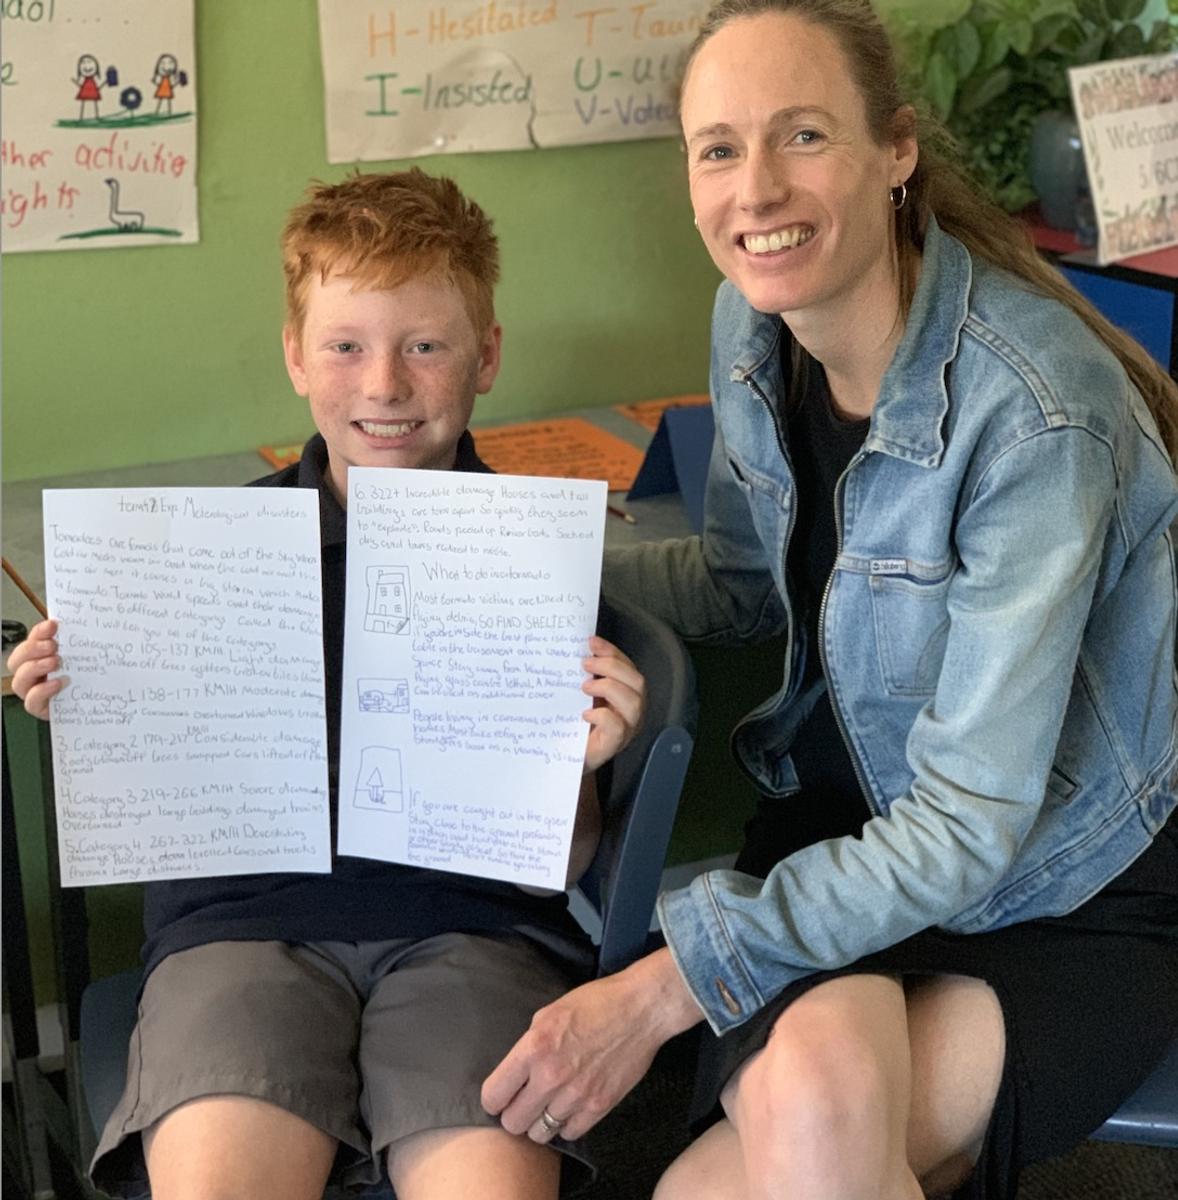 H-Hesitated
I-Insisted
U-
V-Voted
activities
Welcome
5/6C
billabong
Meterological disasters
Tornadoes are funnels that come out of the Sky When
Cold air Meets warm air and when the cold air and the
Warm air meet it causes a big storm which makes
a tornado Tornado Wind speeds and their damage
range from 6 different categorys Called the
Scale I will tell you all of the categorys
Category 0 105-137 KM/H Light damage
broken off trees gutters broken tiles blown
off roofs
2. Category 1 138-177 KM/H Moderate damage
Roofs damaged Caravans overturned Windows broken
doors blown off
3. Category 2 179-217 KM/H Considerable damage
Roofs blown off trees snapped Cars lifted off the
Ground
4 Category 3 219-266 KM/H Severe damage
Houses destroyed large buildings damaged trains
Overturned
5. Category 4 267-322 KM/H Devastating
damage Houses down levelled Cars and trucks
thrown Large distances.
6. 322+ Incredible damage Houses and tall
buildings are torn apart So quickly they seem
to "explode". Roads peeled up River beds Sucked
dry and towns reduced to rubble.
What to do in a tornado
Most tornado victims are killed by
flying debris, SO FIND SHELTER!!
if you're inside the best place is under a
table in the basement or in a under stairs
Space Stay away from Windows as
flying glass can be lethal. A mattress
Can be used as additional cover
People living in caravans or Mobile
homes Must take refuge in a More
as a Warning is issued
If you are caught out in the open
Stay Close to the ground preferably
in a ditch and
So that the
the ground